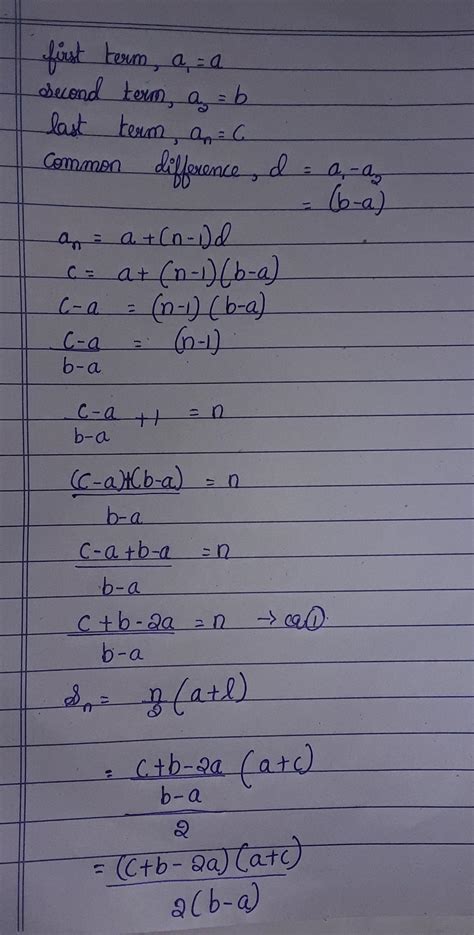 first term, a₁ = a
second term, a₂ = b
last term, aₙ = c
Common difference, d = a₁ - a₂
= (b-a)
aₙ = a + (n-1)d
c = a + (n-1)(b-a)
c-a = (n-1)(b-a)
c-a / b-a = (n-1)
c-a / b-a + 1 = n
(c-a)+(b-a) / b-a = n
c-a+b-a / b-a = n
c+b-2a / b-a = n → eq①
Sₙ = n/2 (a+l)
= c+b-2a / b-a / 2 (a+c)
= (c+b-2a)(a+c) / 2(b-a)